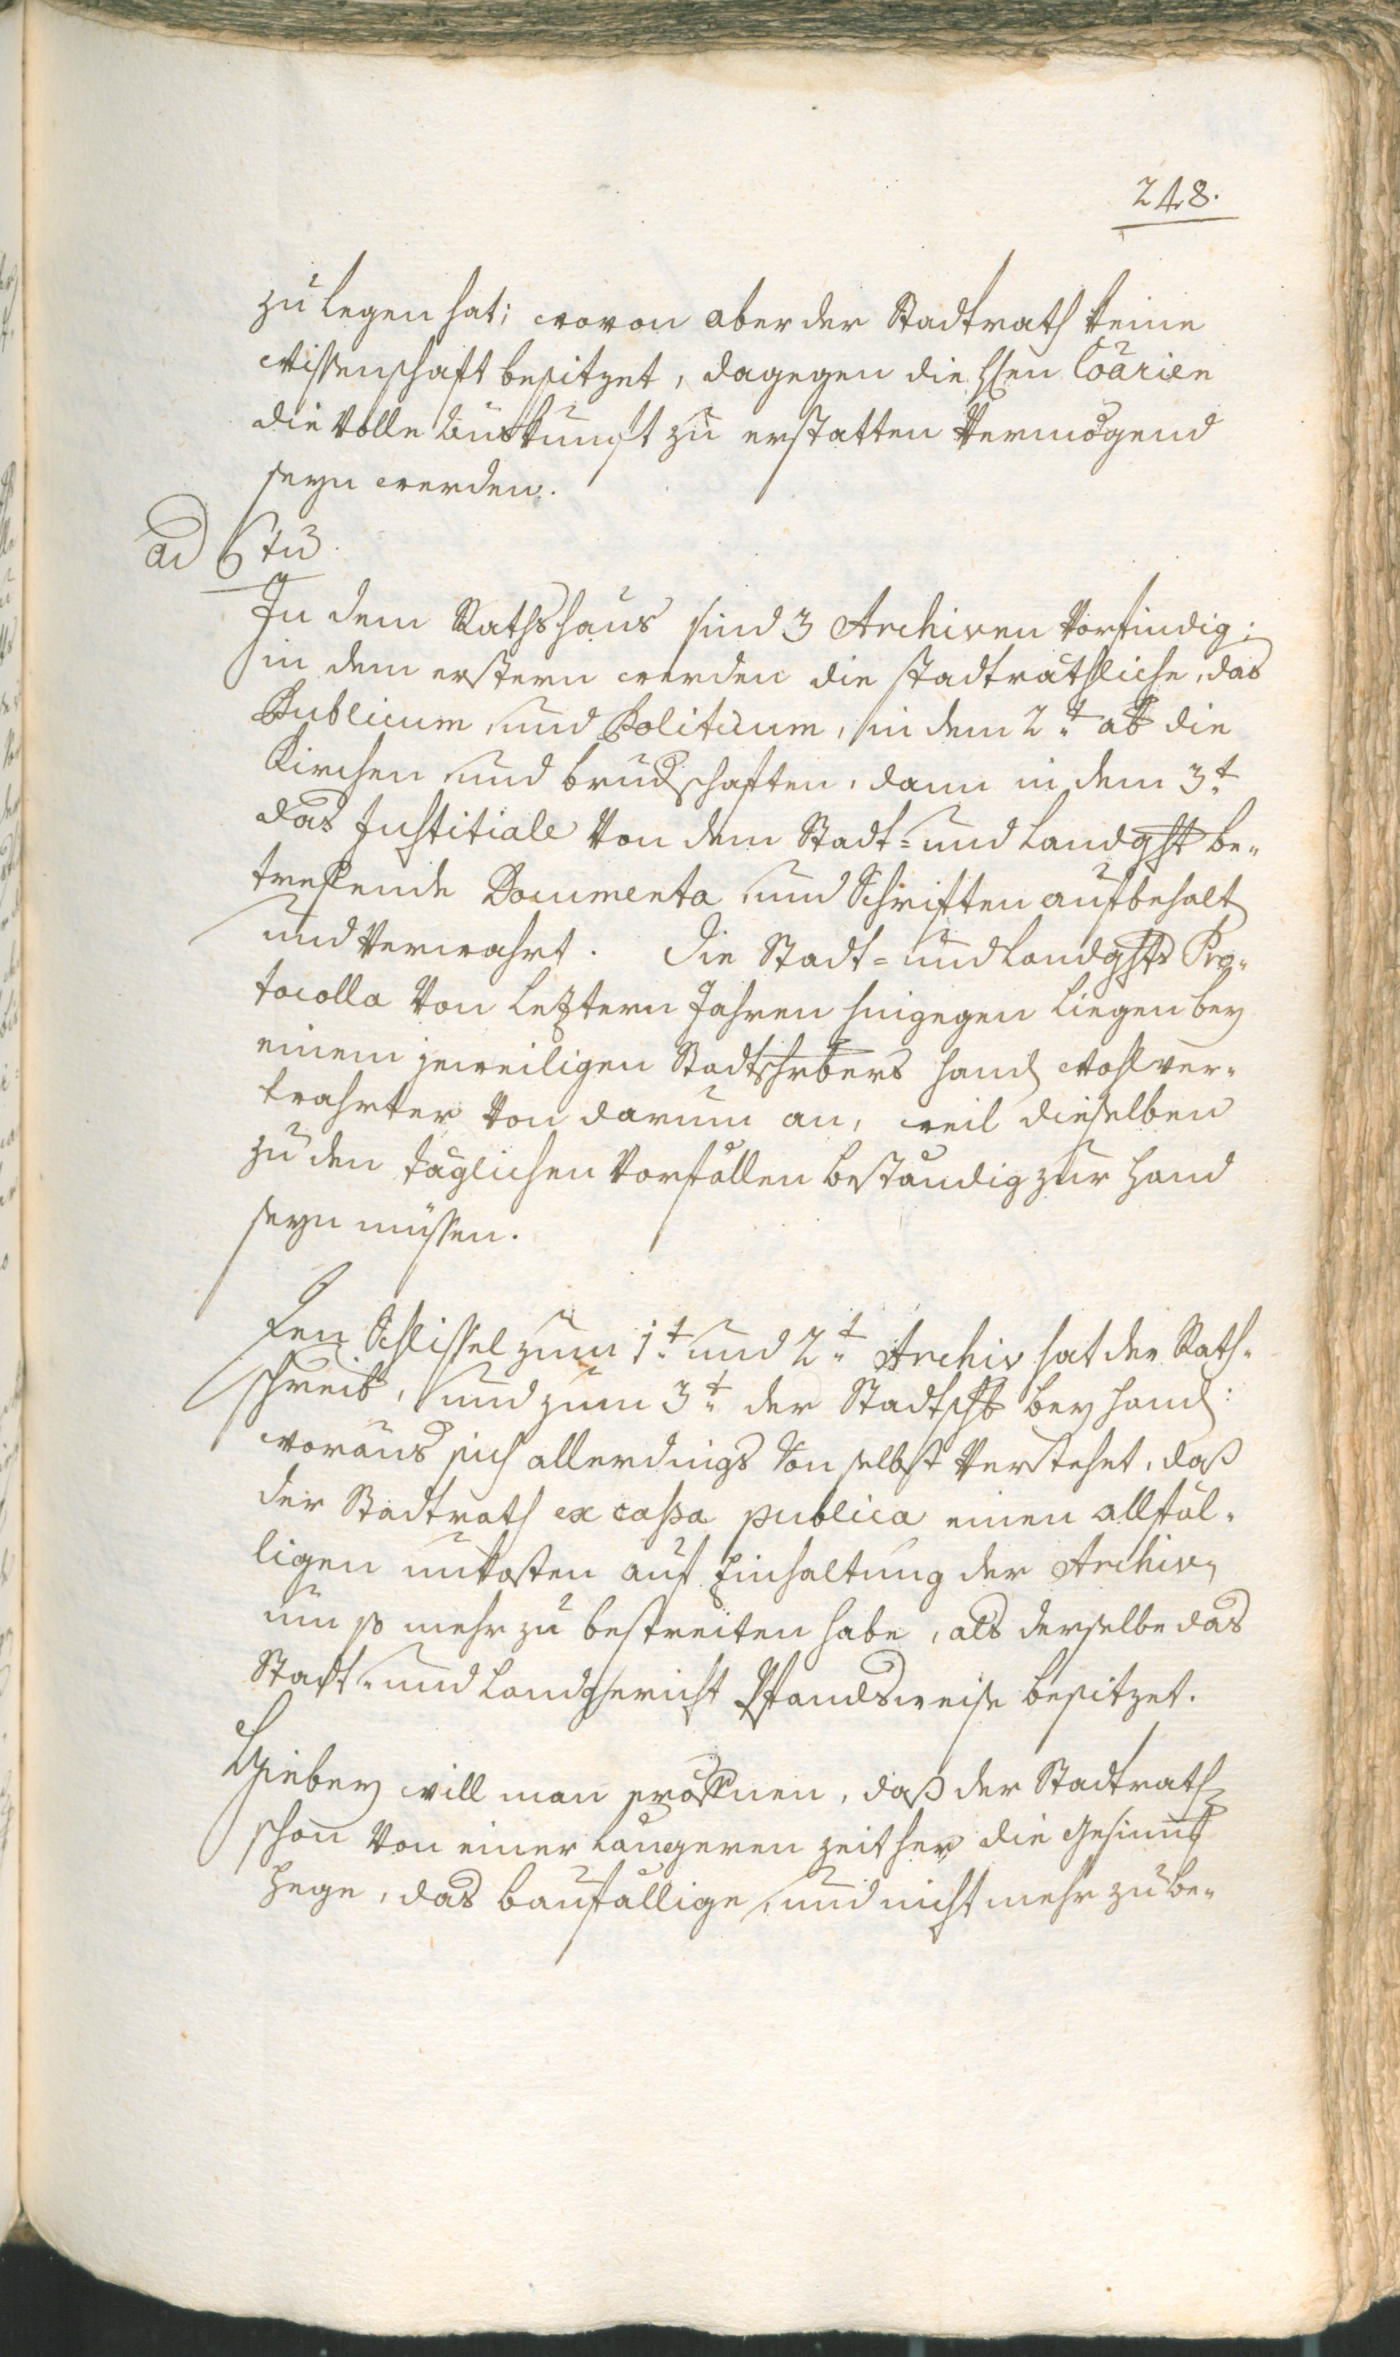 248.
zu legen hat; wovon aber der Stadtrath keine
Wissenschaft besitzet, dagegen die Hen Coãrien
die Volle auskunft zu erstatten Vermögend
seyn werden.
ad 6tũ
In dem Rathshaus sind 3 Archiven Vorfindig;
in dem erstern werden die stadträthliche, das
Publicum, und Politicum, in dem 2t ab die
Kirchen und brudschaften, dann in dem 3t
das Justitiale Von dem Stadt- und Landght be-
treffende Documenta und Schriften aufbehalt
und Verwahrt. Die Stadt- und Landghts Pro-
tocolla Von leztern Jahren hingegen liegen bey
einem jeweiligen Stadtschrbers hand wohlver-
wahrter Von darum an, weil dieselben
zu den täglichen Vorfällen beständig zur Hand
seyn müssen.
Den Schlissel zum 1t und 2t Archiv hat der Rath-
schreib, und zum 3t der Stadtschb bey hand:
woraus sich allerdings Von selbst Verstehet, daß
der Stadtrath ex cassa publica einen allfäl-
ligen unkosten auf Einhaltung der Archiv
um so mehr zu bestreiten habe, als derselbe das
Stadt- und Landgericht Pfandsweise besitzet.
Hiebey will man eröffnen, daß der Stadtrath
schon Von einer längeren zeit her die Gesinng
hege, das baufällige, und nicht mehr zu be-